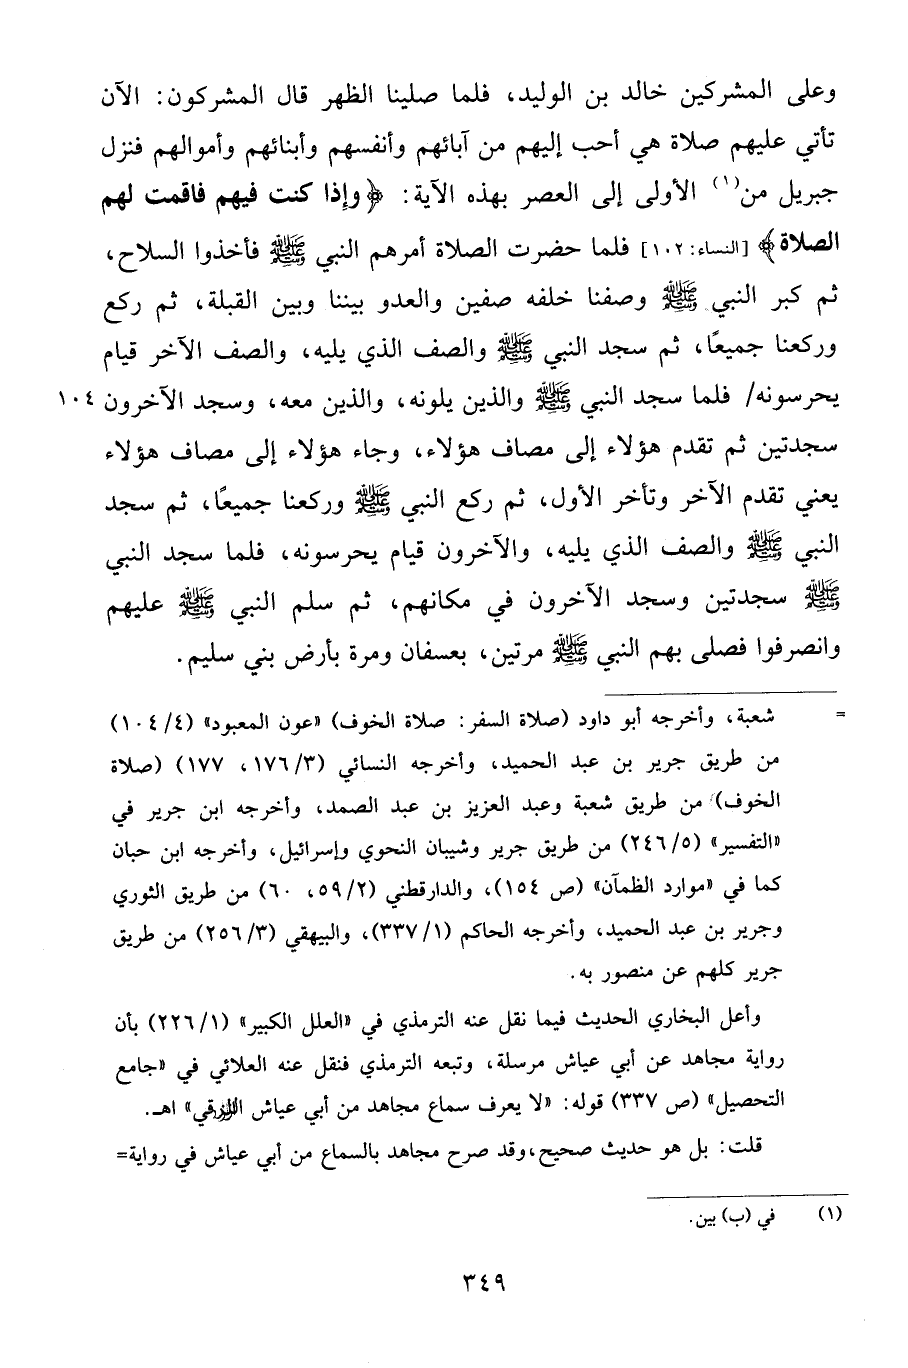 وعلى المشركين خالد بن الوليد، فلما صلينا الظهر قال المشركون: الآن
تأتي عليهم صلاة هي أحب إليهم من آبائهم وأنفسهم وأبنائهم وأموالهم فنزل
جبريل من(١) الأولى إلى العصر بهذه الآية: ﴿وإذا كنت فيهم فاقمت لهم
الصلاة﴾ [النساء: ١٠٢] فلما حضرت الصلاة أمرهم النبي ﷺ فأخذوا السلاح،
ثم كبر النبي ﷺ وصفنا خلفه صفين والعدو بيننا وبين القبلة، ثم ركع
وركعنا جميعًا، ثم سجد النبي ﷺ والصف الذي يليه، والصف الآخر قيام
يحرسونه/ فلما سجد النبي ﷺ والذين يلونه، والذين معه، وسجد الآخرون ١٠٤
سجدتين ثم تقدم هؤلاء إلى مصاف هؤلاء، وجاء هؤلاء إلى مصاف هؤلاء
يعني تقدم الآخر وتأخر الأول، ثم ركع النبي ﷺ وركعنا جميعًا، ثم سجد
النبي ﷺ والصف الذي يليه، والآخرون قيام يحرسونه، فلما سجد النبي
ﷺ سجدتين وسجد الآخرون في مكانهم، ثم سلم النبي ﷺ عليهم
وانصرفوا فصلى بهم النبي ﷺ مرتين، بعسفان ومرة بأرض بني سليم.
= شعبة، وأخرجه أبو داود (صلاة السفر: صلاة الخوف) «عون المعبود» (٤/ ١٠٤)
من طريق جرير بن عبد الحميد، وأخرجه النسائي (٣/ ١٧٦، ١٧٧) (صلاة
الخوف) من طريق شعبة وعبد العزيز بن عبد الصمد، وأخرجه ابن جرير في
«التفسير» (٥/ ٢٤٦) من طريق جرير وشيبان النحوي وإسرائيل، وأخرجه ابن حبان
كما في «موارد الظمآن» (ص ١٥٤)، والدارقطني (٢/ ٥٩، ٦٠) من طريق الثوري
وجرير بن عبد الحميد، وأخرجه الحاكم (١/ ٣٣٧)، والبيهقي (٣/ ٢٥٦) من طريق
جرير كلهم عن منصور به.
وأعل البخاري الحديث فيما نقل عنه الترمذي في «العلل الكبير» (١/ ٢٢٦) بأن
رواية مجاهد عن أبي عياش مرسلة، وتبعه الترمذي فنقل عنه العلائي في «جامع
التحصيل» (ص ٣٣٧) قوله: «لا يعرف سماع مجاهد من أبي عياش الزرقي» اهـ.
قلت: بل هو حديث صحيح، وقد صرح مجاهد بالسماع من أبي عياش في رواية=
(١) في (ب) بين.
٣٤٩